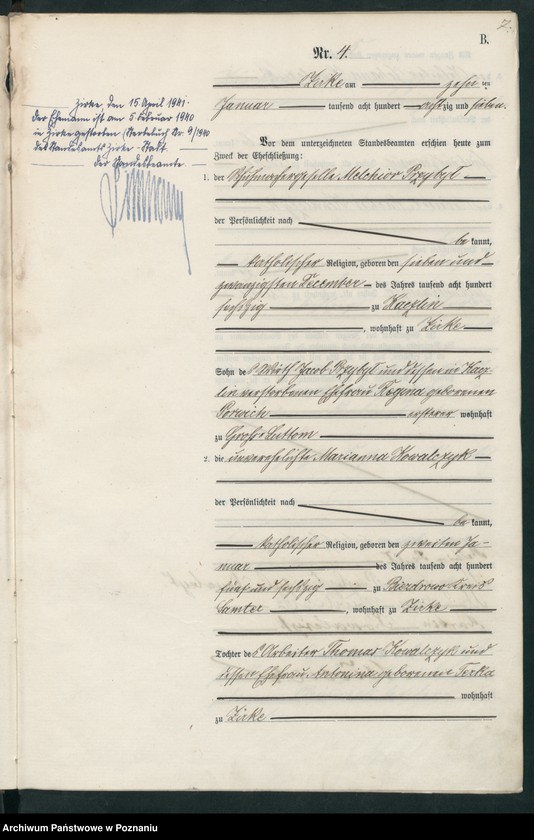 7.
B.
Nr. 4.
Zirke am zehn ten
Januar tausend acht hundert achtzig und sieben.
Zirke, den 15 April 1941.
Der Ehemann ist am 5 Februar 1940
in Zirke gestorben (Sterbebuch Nr. 9/1940
des Standesamts Zirke-Stadt.
Der Standesbeamte
Vor dem unterzeichneten Standesbeamten erschien heute zum
Zweck der Eheschließung:
1. der Schuhmachergeselle Melchior Przybyl
der Persönlichkeit nach
be kannt,
katholischer Religion, geboren den sieben und
zwanzigsten December des Jahres tausend acht hundert
sechzig zu Kaczlin
, wohnhaft zu Zirke
Sohn des Wirth Jacob Przybyl und dessen in Kacz-
lin verstorbenen Ehefrau Regina geborenen
ersterer wohnhaft
zu Groß Luttom
2. die unverehelichte Marianna Kowalczyk
der Persönlichkeit nach
be kannt,
katholischer Religion, geboren den zweiten Ja-
nuar des Jahres tausend acht hundert
fünf und sechzig zu Biezdrowo Kreis
Samter , wohnhaft zu Zirke
Tochter des Arbeiter Thomas Kowalczyk und
dessen Ehefrau Antonina geborenen Ferka
wohnhaft
zu Zirke
Archiwum Państwowe w Poznaniu